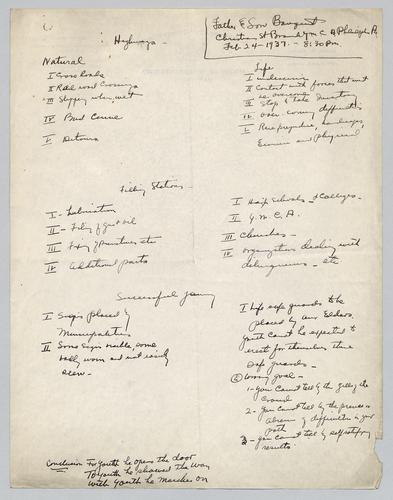 Highways -
Father & Son Banquet
Christian St Branch Y M C A Philadelphia Pa
Feb 24 - 1937 - 8:30 Pm.
Natural
I Cross Roads
II Rail road Crossings
III Slippery when wet
IV Bad Curve
V Detours
Life
I
II Contact with forces that must
be overcome
III Stop & take Inventory
IV Over-coming difficulties
V Race prejudice, handicaps,
Economic and Physical
Filling Stations -
I - Lubrication
II - Filling of gas & oil
III - Fixing of punctures etc
IV Additional parts
I High Schools - & Colleges -
II Y. M. C. A.
III Churches -
IV Organizations dealing with
delinquents - etc
Successful Journey
I Signs placed by
Municipalities
II Some signs visible, some
badly worn and not easily
seen -
I Life safe guards to be
placed by our Elders.
Youth cannot be expected to
erect for themselves these
safe guards -
② Wrong goal -
1 - you cannot tell by the gilding of the
2 - you cannot tell by the presence or
absence of difficulties in your
path
3 - you cannot tell by
results
Conclusion For Youth he opens the door
To Youth he showed the Way
With Youth he Marches on